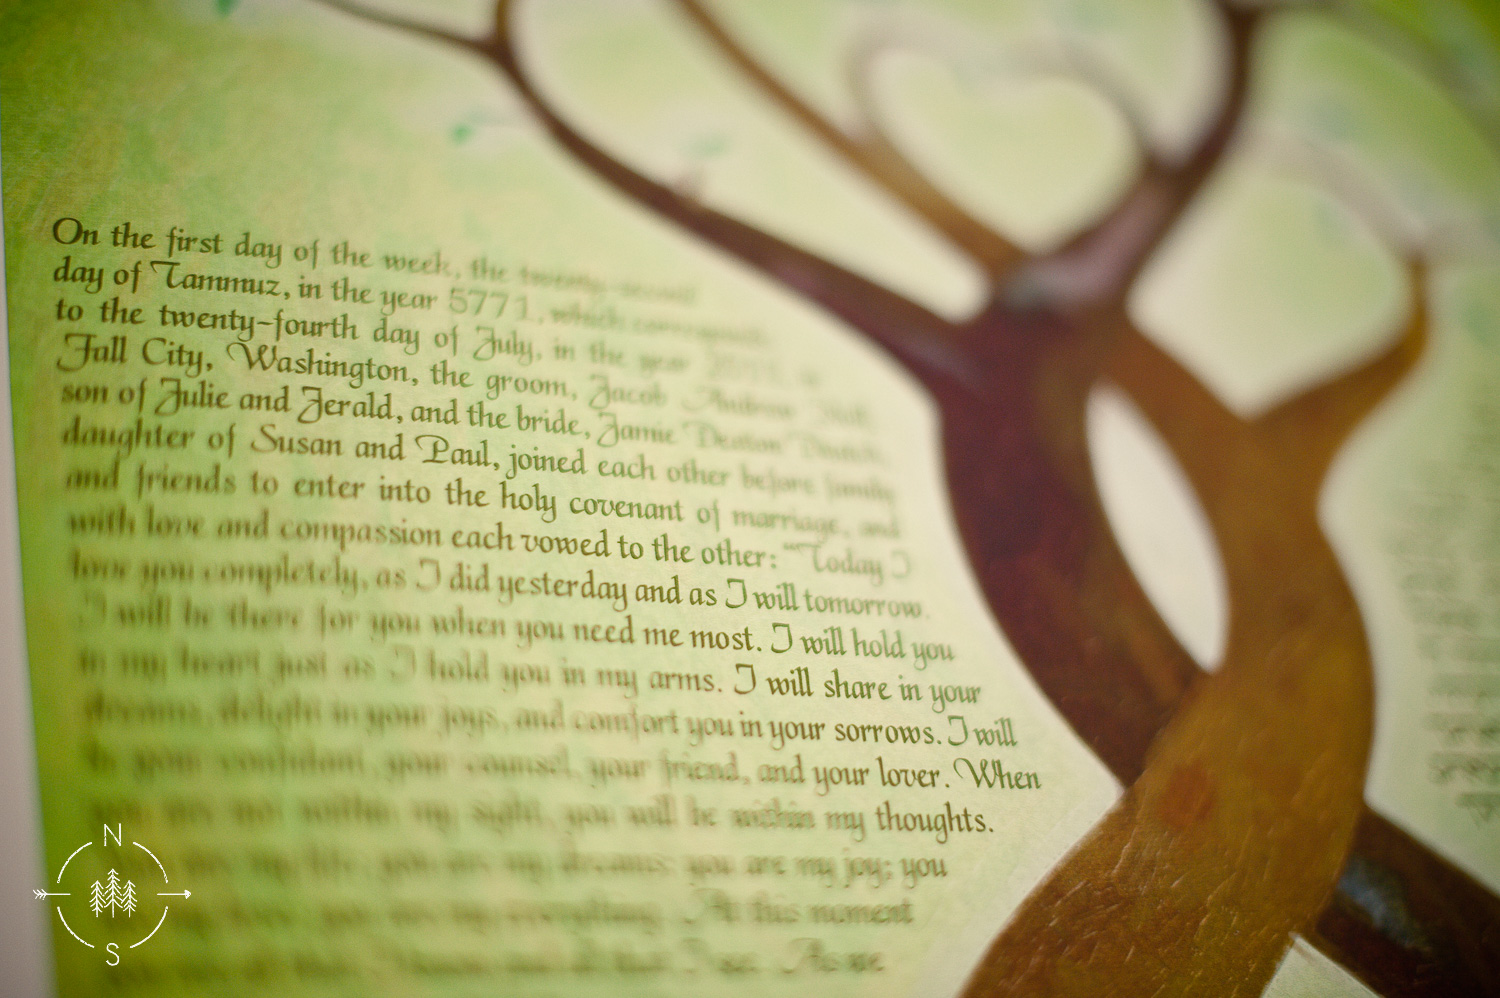 On the first day of the week, the twenty-second
day of Tammuz, in the year 5771, which corresponds
to the twenty-fourth day of July, in the year
Fall City, Washington, the groom, Jacob Andrew
son of Julie and Jerald, and the bride, Jamie
daughter of Susan and Paul, joined each other before family
and friends to enter into the holy covenant of marriage, and
with love and compassion each vowed to the other: "Today I
love you completely, as I did yesterday and as I will tomorrow.
I will be there for you when you need me most. I will hold you
in my heart just as I hold you in my arms. I will share in your
dreams, delight in your joys, and comfort you in your sorrows. I will
be your confidant, your counsel, your friend, and your lover. When
you are not within my sight, you will be within my thoughts.
my life, you are my dreams; you are my joy; you
everything. At this moment
I see. As we
N
S